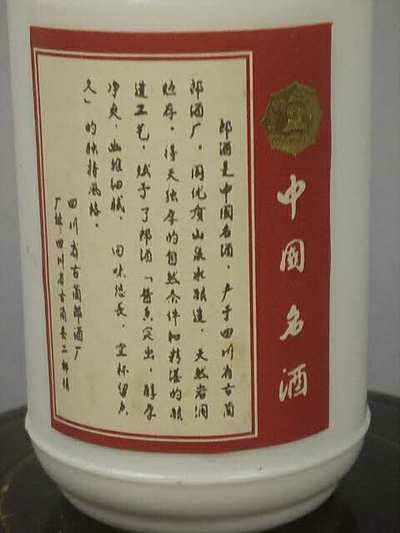 中国名酒
郎酒是中国名酒,产于四川省古蔺
郎酒厂。因优有山泉水酿造,天然岩洞
贮存,得天独厚的自然条件和精湛的酿
造工艺,赋予了郎酒「酱香突出,醇厚
净爽,幽雅细腻,回味悠长,空杯留香
久」的独特风格。
四川省古蔺郎酒厂
厂址:四川省古蔺县二郎镇